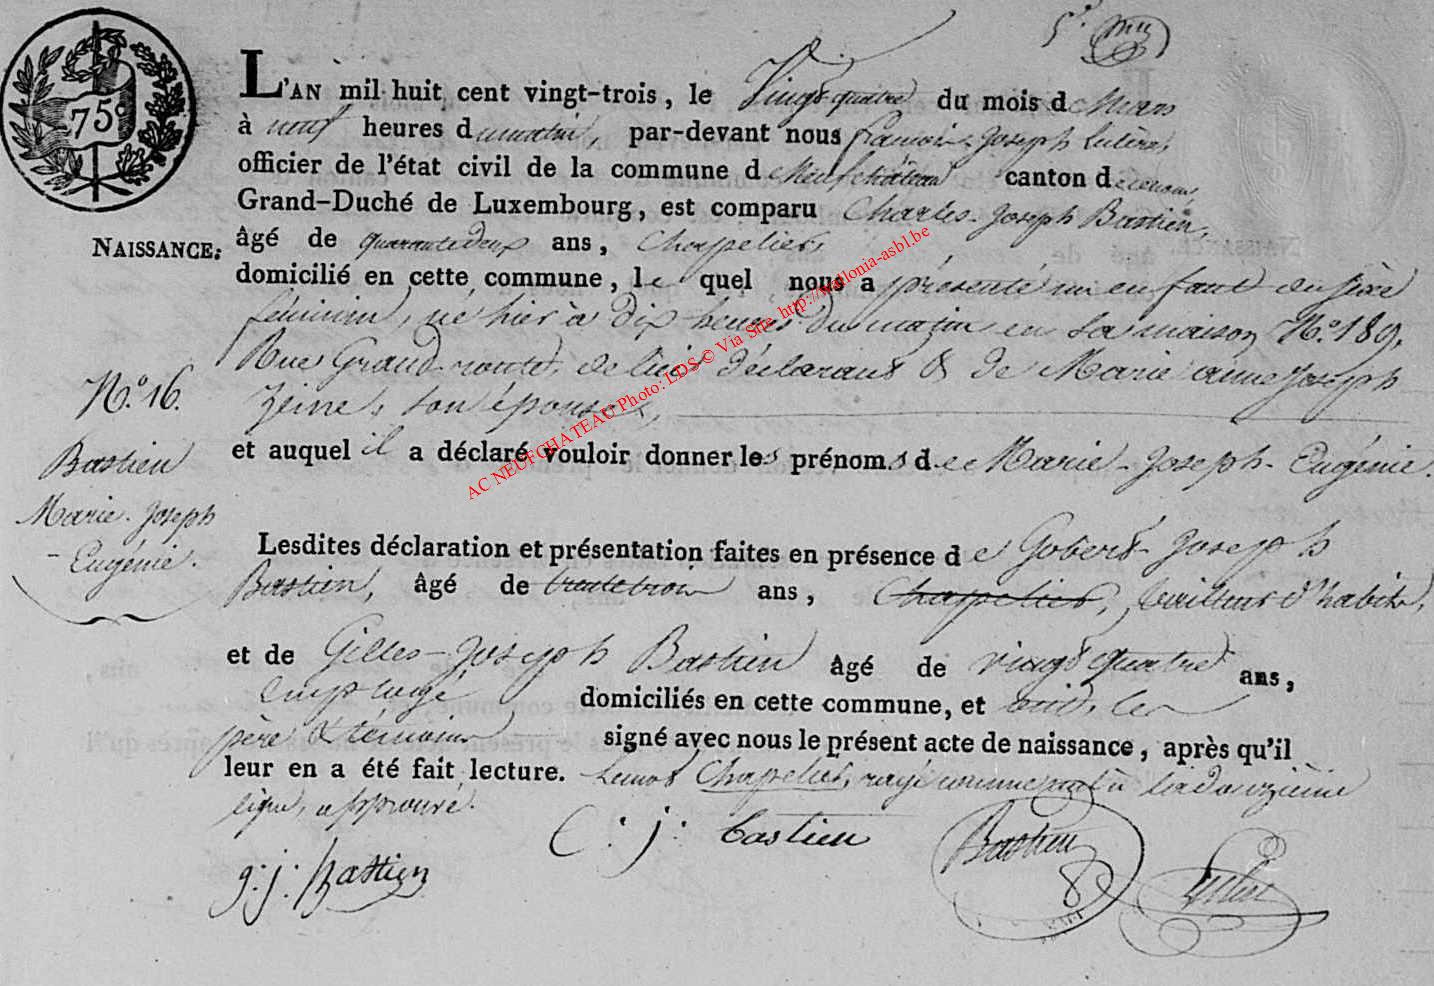 5e
75c
L'AN mil huit cent vingt-trois, le Vingt quatre du mois de Mars
à neuf heures du matin, par-devant nous françois-Joseph
officier de l'état civil de la commune de Neufchâteau canton de
Grand-Duché de Luxembourg, est comparu Charles-Joseph Bastien,
NAISSANCE:
âgé de quarante deux ans, Chapelier,
domicilié en cette commune, le quel nous a présenté un enfant du sexe
féminin, né hier à dix heures du matin en sa maison N.o 189,
Rue Grand-route, de lui déclarant & de Marie anne Joseph
N.o 16.
son épouse,
Bastien
Marie-Joseph
-Eugénie.
et auquel il a déclaré vouloir donner les prénoms de Marie-Joseph-Eugénie.
Lesdites déclaration et présentation faites en présence de Gobert-Joseph
Bastien, âgé de trente trois ans, Chappelier, tailleur d'habits,
et de Gilles-Joseph Bastien âgé de vingt quatre ans,
employé domiciliés en cette commune, et ont, les
père & témoins signé avec nous le présent acte de naissance, après qu'il
leur en a été fait lecture. Le mot Chapelier, rayé comme nul à la douzième
ligne, approuvé.
C. j. bastien
Bastien
g. j. Bastien
AC NEUFCHATEAU Photo: LDS © Via Site http://wallonia-asbl.be